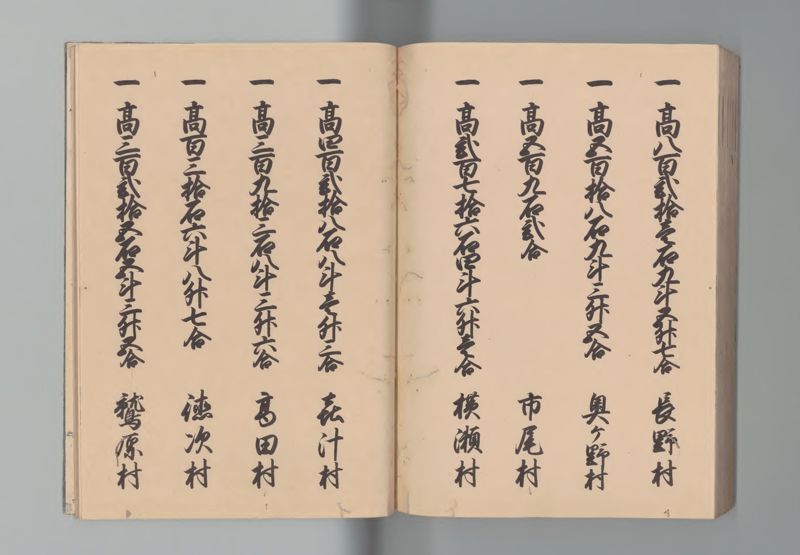 一 高八百弐拾壱石九斗五升七合 長野村
一 高五百拾八石九斗三升五合 奥ケ野村
一 高五百九石弐合 市尾村
一 高弐百七拾六石四斗六升壱合 横瀬村
一 高四百弐拾八石八斗壱升二合 汁村
一 高三百九拾二石八斗三升六合 高田村
一 高百三拾石六斗八升七合 徳次村
一 高三百弐拾五石五斗三升五合 鷲原村